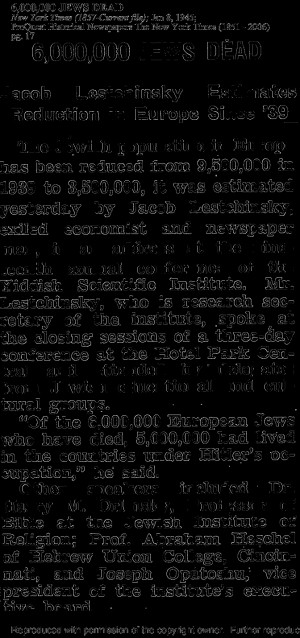 6,000,000 JEWS DEAD
New York Times (1857-Current file); Jan 8, 1945;
ProQuest Historical Newspapers The New York Times (1851 - 2006)
pg. 17
6,000,000 JEWS DEAD
Jacob Lestchinsky Estimates
Reduction in Europe Since '39
The Jewish population in Europe
has been reduced from 9,500,000 in
1939 to 3,500,000, it was estimated
yesterday by Jacob Lestchinsky,
exiled economist and newspaper
man, in an address at the
annual conference of the
Yiddish Scientific Institute. Mr.
Lestchinsky, who is research sec-
retary of the institute, spoke at
the closing sessions of a three-day
conference at the Hotel Park Cen-
tral
Jewish educational and cul-
tural groups.
"Of the 6,000,000 European Jews
who have died, 5,000,000 had lived
in the countries under Hitler's oc-
cupation," he said.
Other speakers included Dr.
of
Bible at the Jewish Institute of
Religion; Prof. Abraham Heschel
of Hebrew Union College, Cincin-
nati, and Joseph Opatoshu, vice
president of the institute's execu-
tive board.
Reproduced with permission of the copyright owner. Further reprodu